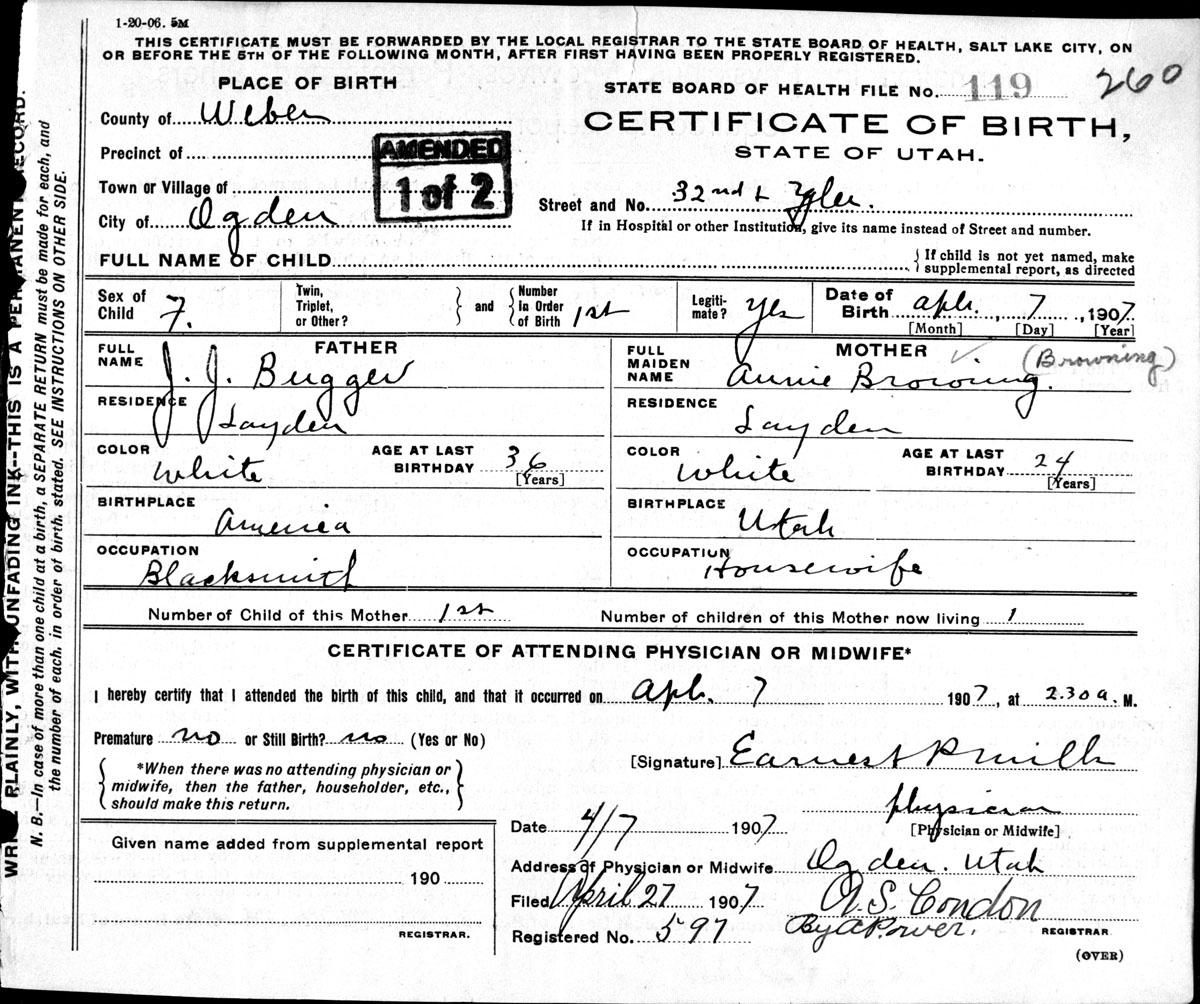 1-20-06. 5M
THIS CERTIFICATE MUST BE FORWARDED BY THE LOCAL REGISTRAR TO THE STATE BOARD OF HEALTH, SALT LAKE CITY, ON
OR BEFORE THE 5TH OF THE FOLLOWING MONTH, AFTER FIRST HAVING BEEN PROPERLY REGISTERED.
PLACE OF BIRTH
STATE BOARD OF HEALTH FILE No. 119 260
County of Weber
CERTIFICATE OF BIRTH,
STATE OF UTAH.
Precinct of
AMENDED
1 of 2
Town or Village of
Street and No. 32nd &
City of Ogden
If in Hospital or other Institution, give its name instead of Street and number.
FULL NAME OF CHILD
If child is not yet named, make
supplemental report, as directed
Sex of Child F.
Twin, Triplet, or Other?
and
Number In Order of Birth 1st
Legitimate? Yes
Date of Birth Aph. 7, 1907
[Month] [Day] [Year]
FATHER
FULL NAME J. J. Bugger
RESIDENCE Layden
COLOR White
AGE AT LAST BIRTHDAY 36
[Years]
BIRTHPLACE America
OCCUPATION Blacksmith
MOTHER
FULL MAIDEN NAME Annie Browning. (Browning)
RESIDENCE Layden
COLOR White
AGE AT LAST BIRTHDAY 24
[Years]
BIRTHPLACE Utah
OCCUPATION Housewife
Number of Child of this Mother 1st
Number of children of this Mother now living 1
CERTIFICATE OF ATTENDING PHYSICIAN OR MIDWIFE*
I hereby certify that I attended the birth of this child, and that it occurred on Aph. 7 1907, at 2.30 a. M.
Premature no or Still Birth? no (Yes or No)
*When there was no attending physician or
midwife, then the father, householder, etc.,
should make this return.
[Signature] Earnest P Mills
physician
[Physician or Midwife]
Date 4/7 1907
Address of Physician or Midwife Ogden. Utah
Filed April 27 1907
A. S. Condon
By A Power.
REGISTRAR
Registered No. 597
(OVER)
Given name added from supplemental report
190
REGISTRAR.
WRITE PLAINLY, WITH UNFADING INK--THIS IS A PERMANENT RECORD.
N. B.—In case of more than one child at a birth, a SEPARATE RETURN must be made for each, and
the number of each, in order of birth, stated. SEE INSTRUCTIONS ON OTHER SIDE.